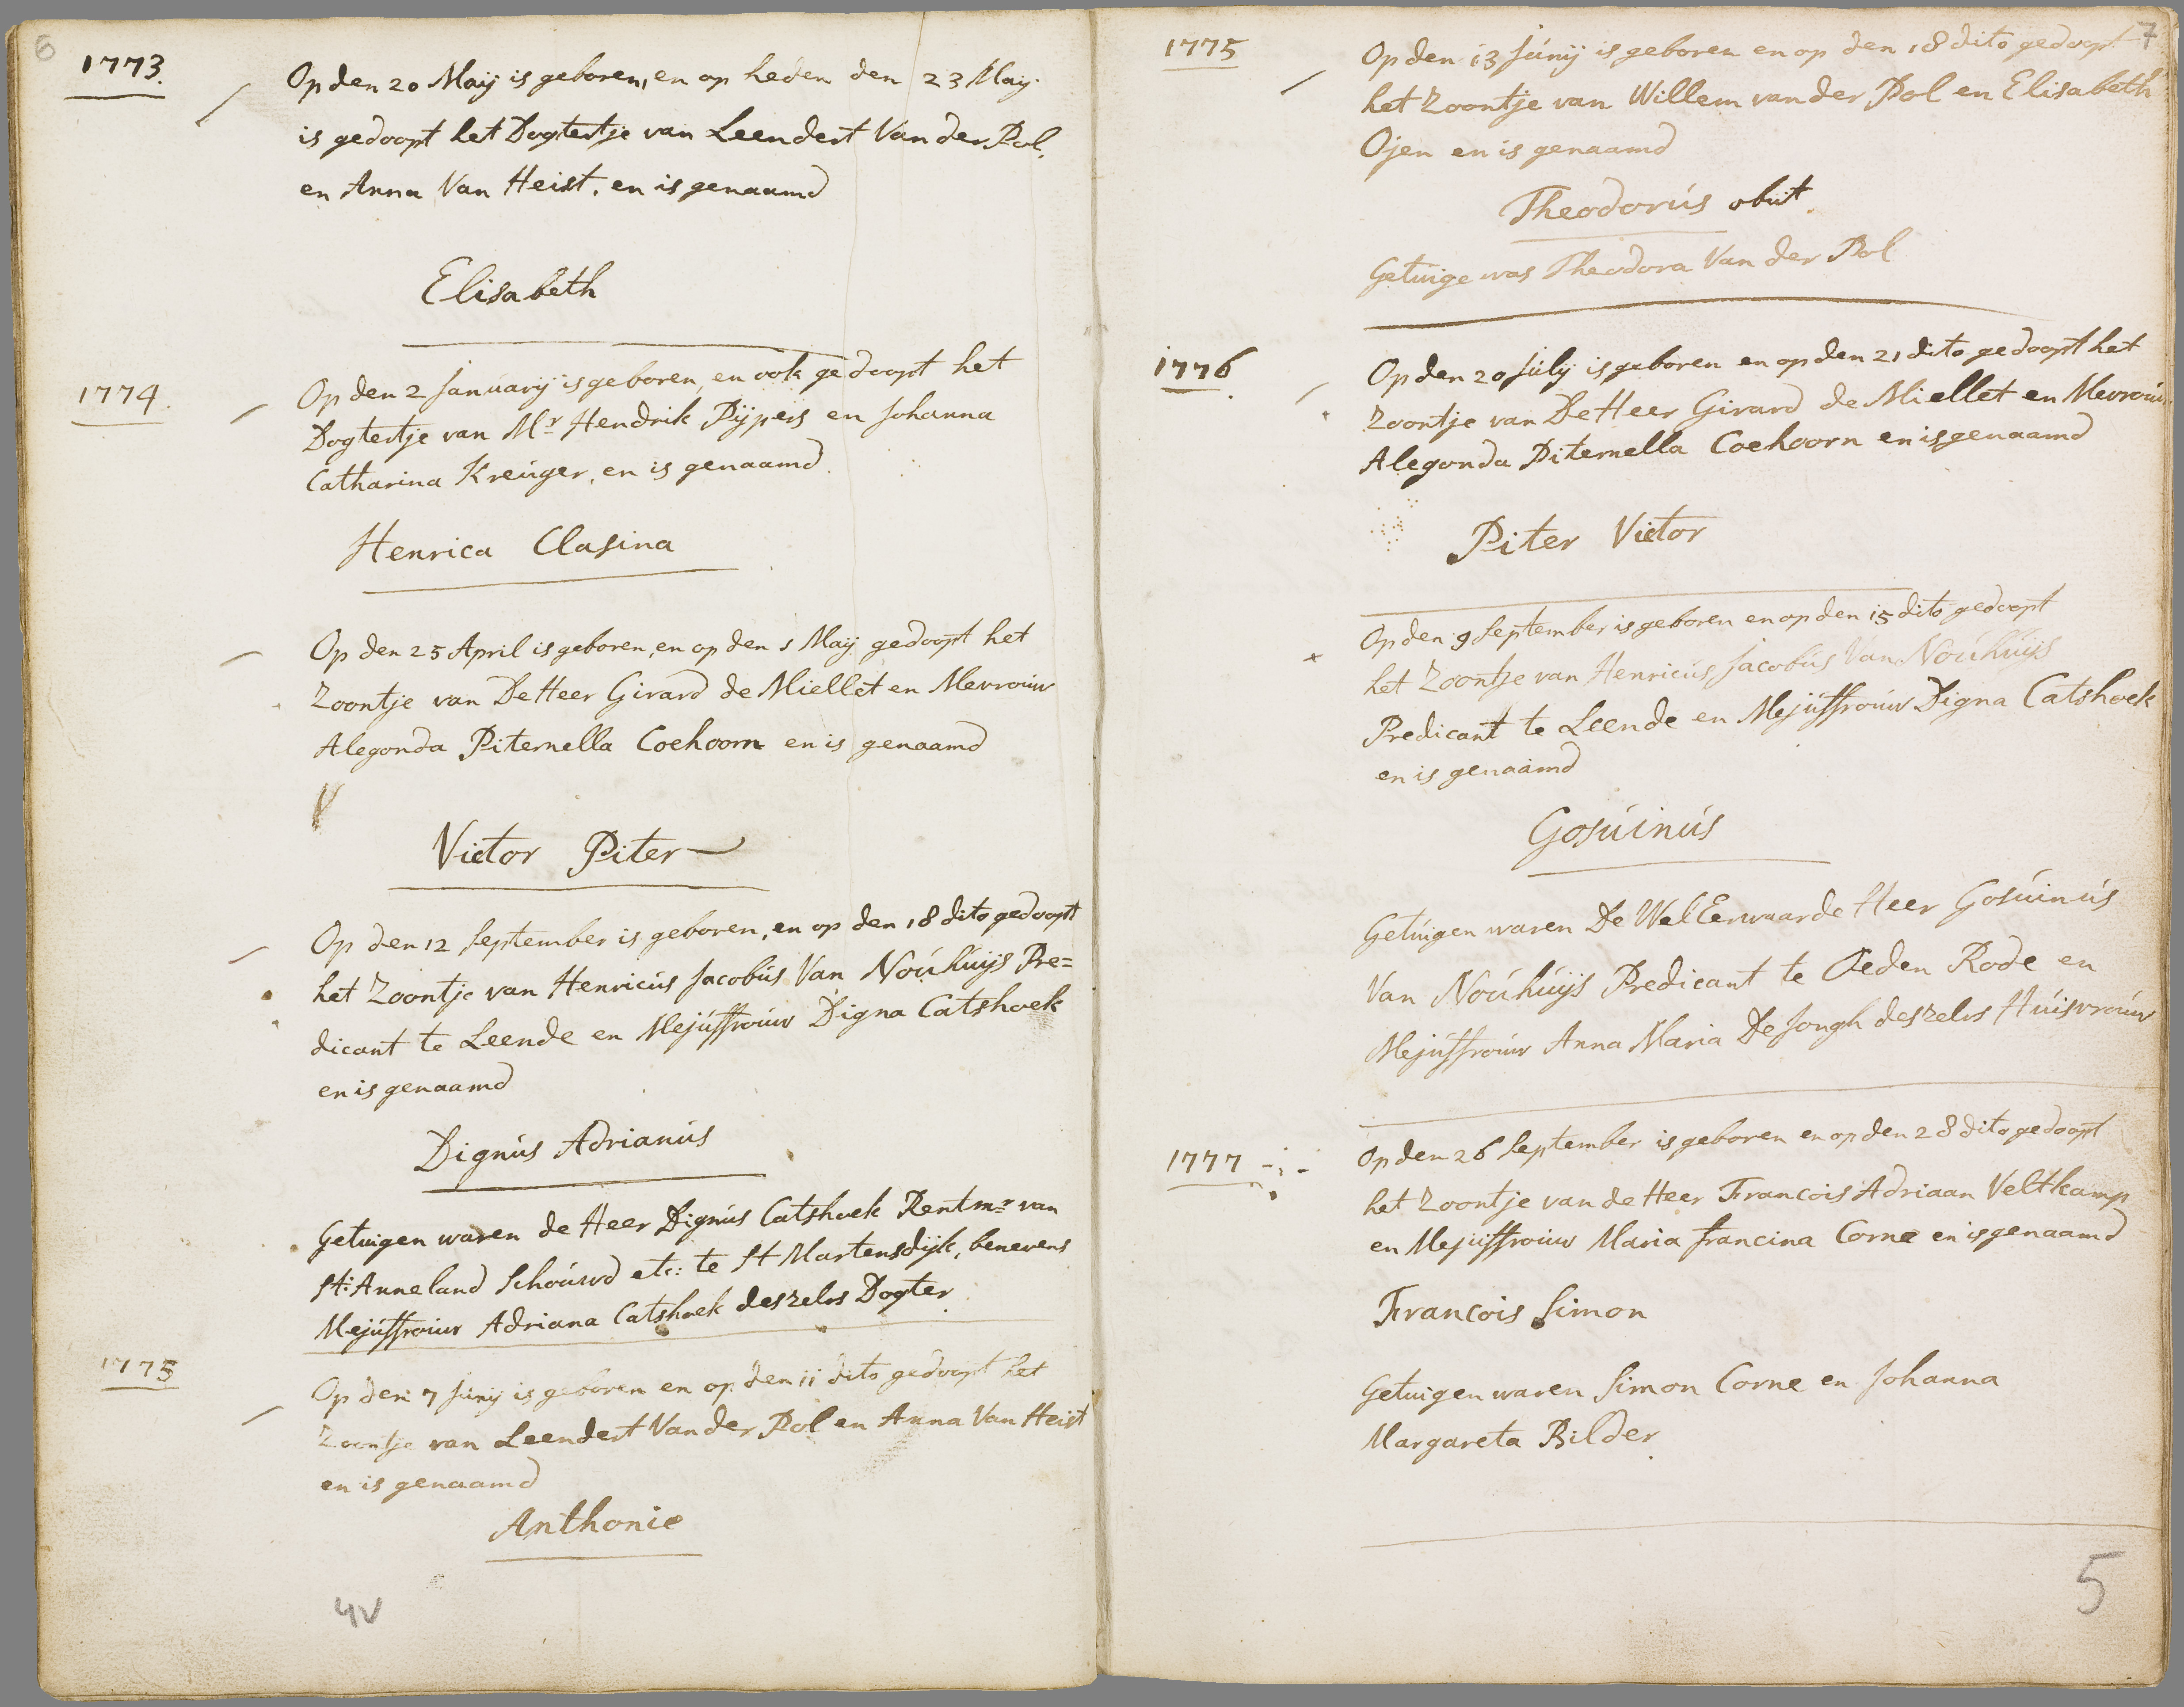 6
1773.
Op den 20 Maij is geboren, en op heden den 23 Maij
is gedoopt het Dogtertje van Leendert Van der Pol,
en Anna Van Heist. en is genaamd
Elisabeth
1774.
Op den 2 Januarij is geboren, en ook gedoopt het
Dogtertje van Mr Hendrik Pijpers en Johanna
Catharina Kreúger, en is genaamd.
Henrica Clasina
Op den 25 April is geboren, en op den 1 Maij gedoopt het
Zoontje van De Heer Girard de Miellet en Mevroúw
Alegonda Piternella Coehoorn en is genaamd
Victor Piter
Op den 12 September is geboren, en op den 18 dito gedoopt
het Zoontje van Henricús Jacobús Van Noúhúijs Pre=
dicant te Leende en Mejúffroúw Digna Catshoek
en is genaamd
Dignús Adrianús
Getuigen waren de Heer Dignús Catshoek Rentmr van
St: Anneland Schoúwd etc: te St Martensdijk, benevens
Mejúffroúw Adriana Catshoek deszelvs Dogter
1775
Op den 7 Júnij is geboren en op den 11 dito gedoopt het
Zoontje van Leendert Van der Pol en Anna Van Heist
en is genaamd
Anthonie
4V
7
1775
Op den 13 Júnij is geboren en op den 18 dito gedoopt
het Zoontje van Willem van der Pol en Elisabeth
Ojen en is genaamd
Theodorús obiit
Getuige was Theodora Van der Pol
1776
Op den 20 Júlij is geboren en op den 21 dito gedoopt het
Zoontje van De Heer Girard de Miellet en Mevroúw
Alegonda Piternella Coehoorn en is genaamd
Piter Victor
Op den 9 September is geboren en op den 15 dito gedoopt
het Zoontje van Henricús Jacobús Van Noúhúijs
Predicant te Leende en Mejúffroúw Digna Catshoek
en is genaamd
Gosúinús
Getúigen waren De Wel Eerwaarde Heer Gosúinús
Van Noúhúijs Predicant te Oeden Rode en
Mejúffroúw Anna Maria De Jongh deszelvs Húisvroúw
1777
Op den 26 September is geboren en op den 28 dito gedoopt
het Zoontje van de Heer Francois Adriaan Veltkamp
en Mejúffroúw Maria francina Corne en is genaamd
Francois Simon
Getuigen waren Simon Corne en Johanna
Margareta Bilder
5